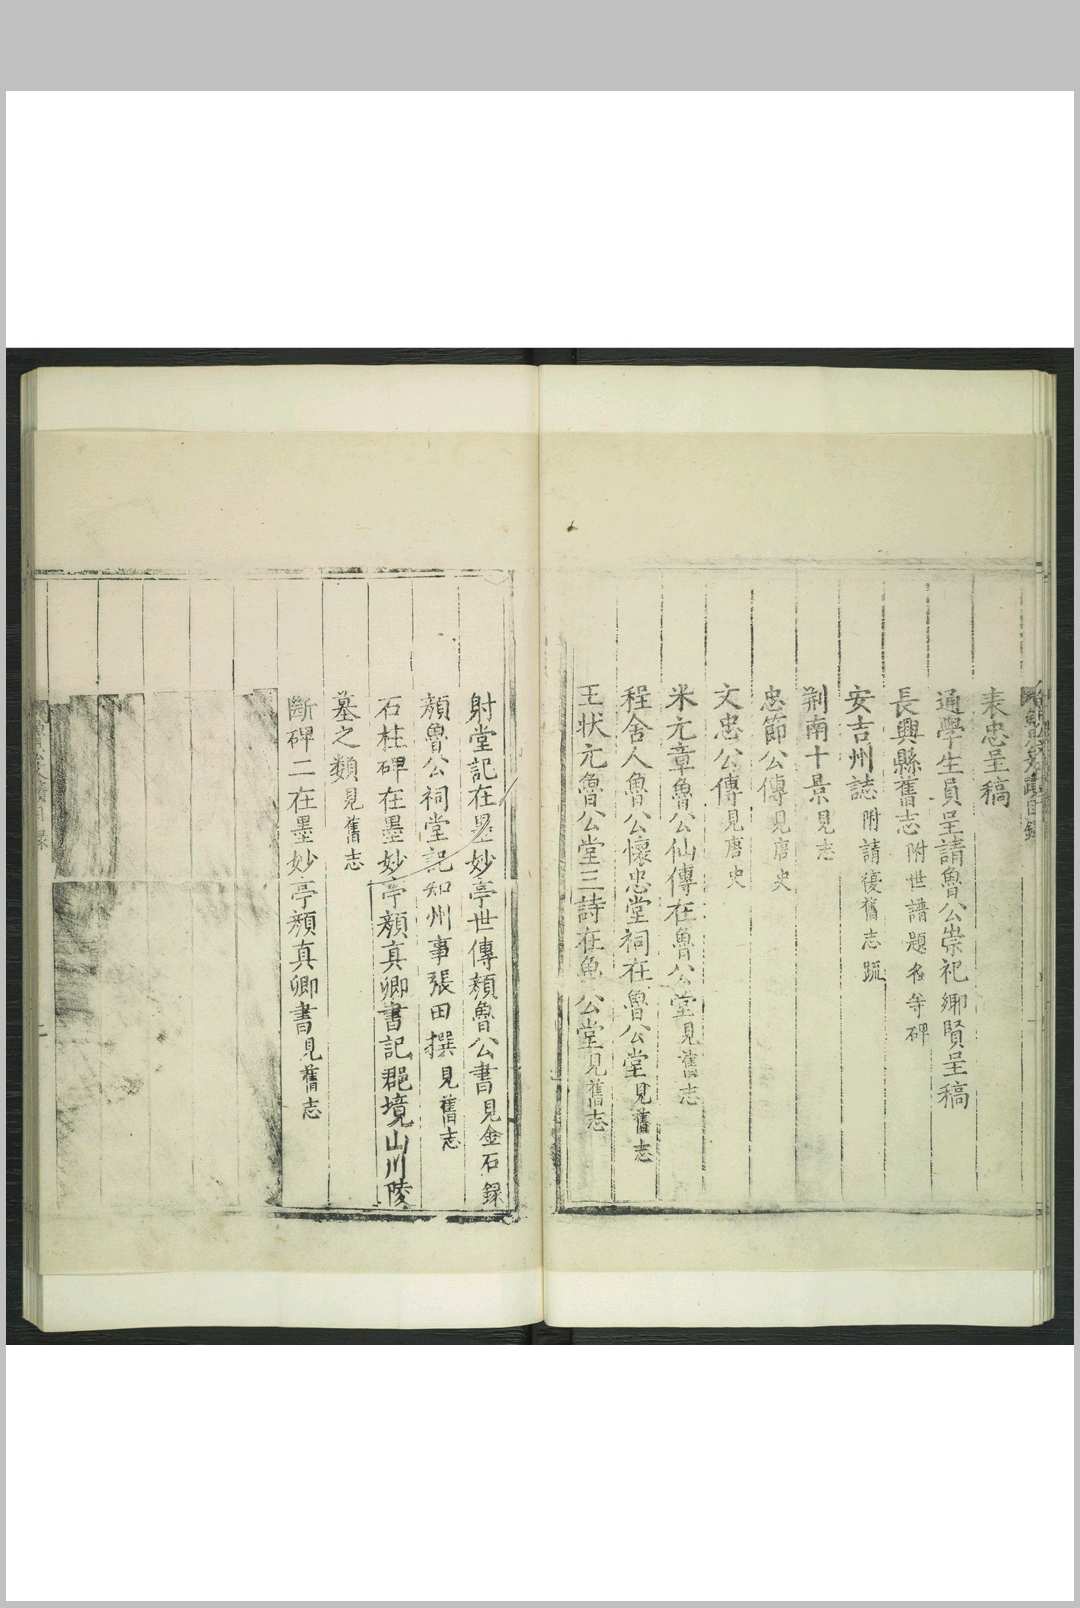 表忠呈稿
通學生員呈請魯公崇祀鄉賢呈稿
長興縣舊志附世譜題名等碑
安吉州誌附請復舊志疏
荆南十景見志
忠節公傳見唐史
文忠公傳見唐史
米元章魯公仙傳在魯公堂見舊志
程舍人魯公懷忠堂祠在魯公堂見舊志
王状元魯公堂三詩在魯公堂見舊志
射堂記在墨妙亭世傳顏魯公書見金石録
顏魯公祠堂記知州事張田撰見舊志
石柱碑在墨妙亭顏真卿書記郡境山川陵
墓之類見舊志
斷碑二在墨妙亭顏真卿書見舊志